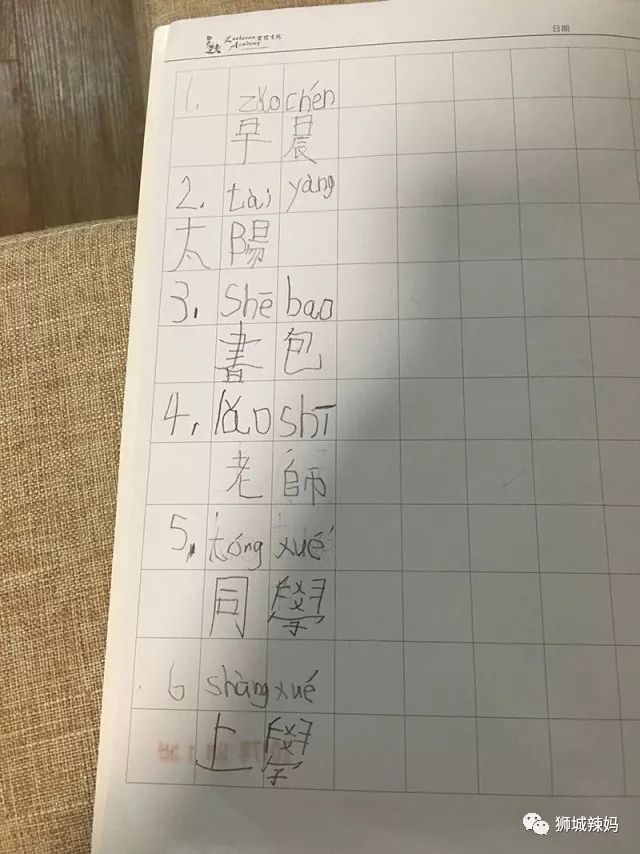 Lutheran Academy 宏信書院
日期
1. zǎo chén
早晨
2. tài yàng
太陽
3. shē bao
書包
4. lǎo shī
老師
5. tóng xué
同學
6 shàng xué
上學
狮城辣妈